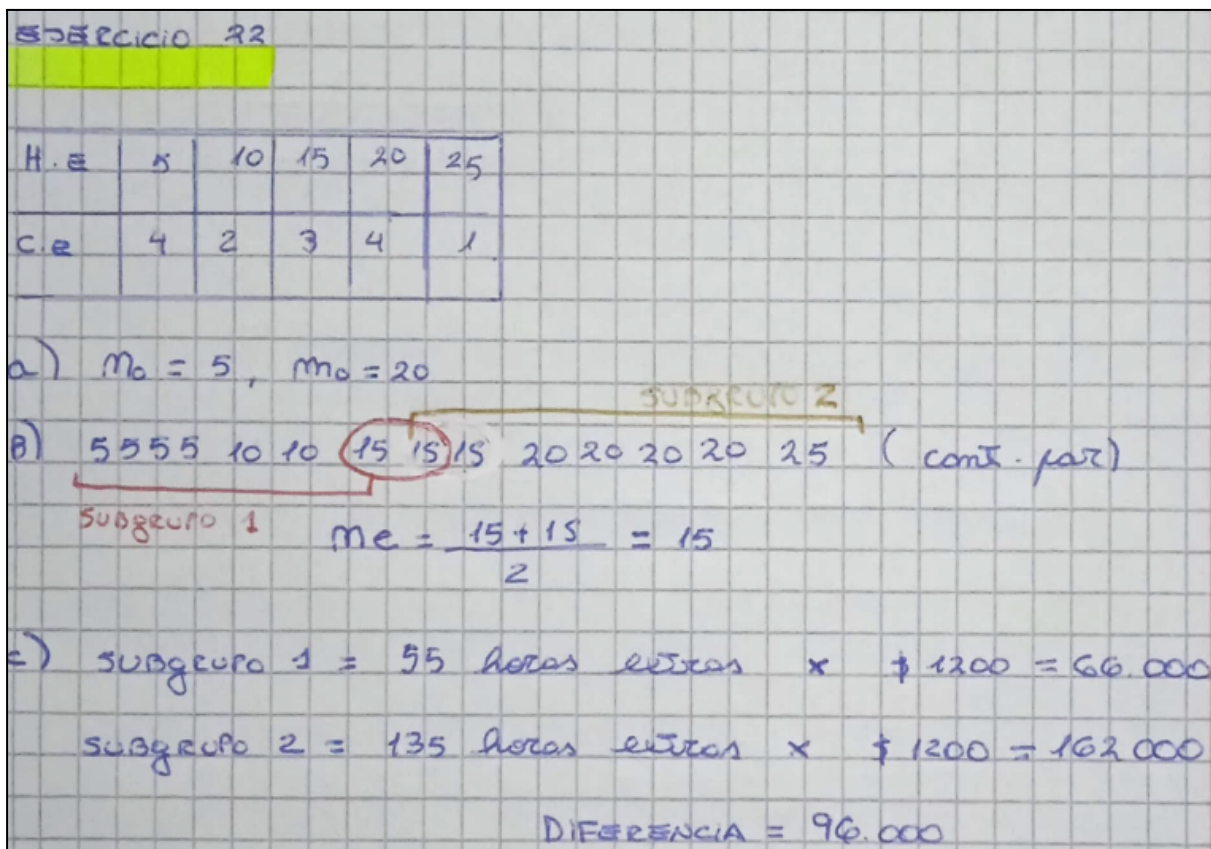 EJERCICIO 22
H.E 5 10 15 20 25
C.e 4 2 3 4 1
a) Mo = 5, Mo = 20
SUBGRUPO 2
B) 5 5 5 5 10 10 15 15 15 20 20 20 20 25 (cant. par)
SUBGRUPO 1
Me = 15 + 15 / 2 = 15
c) SUBgRUPO 1 = 55 horas extras × $ 1200 = 66.000
SUBgRUPO 2 = 135 horas extras × $ 1200 = 162 000
DIFERENCIA = 96.000